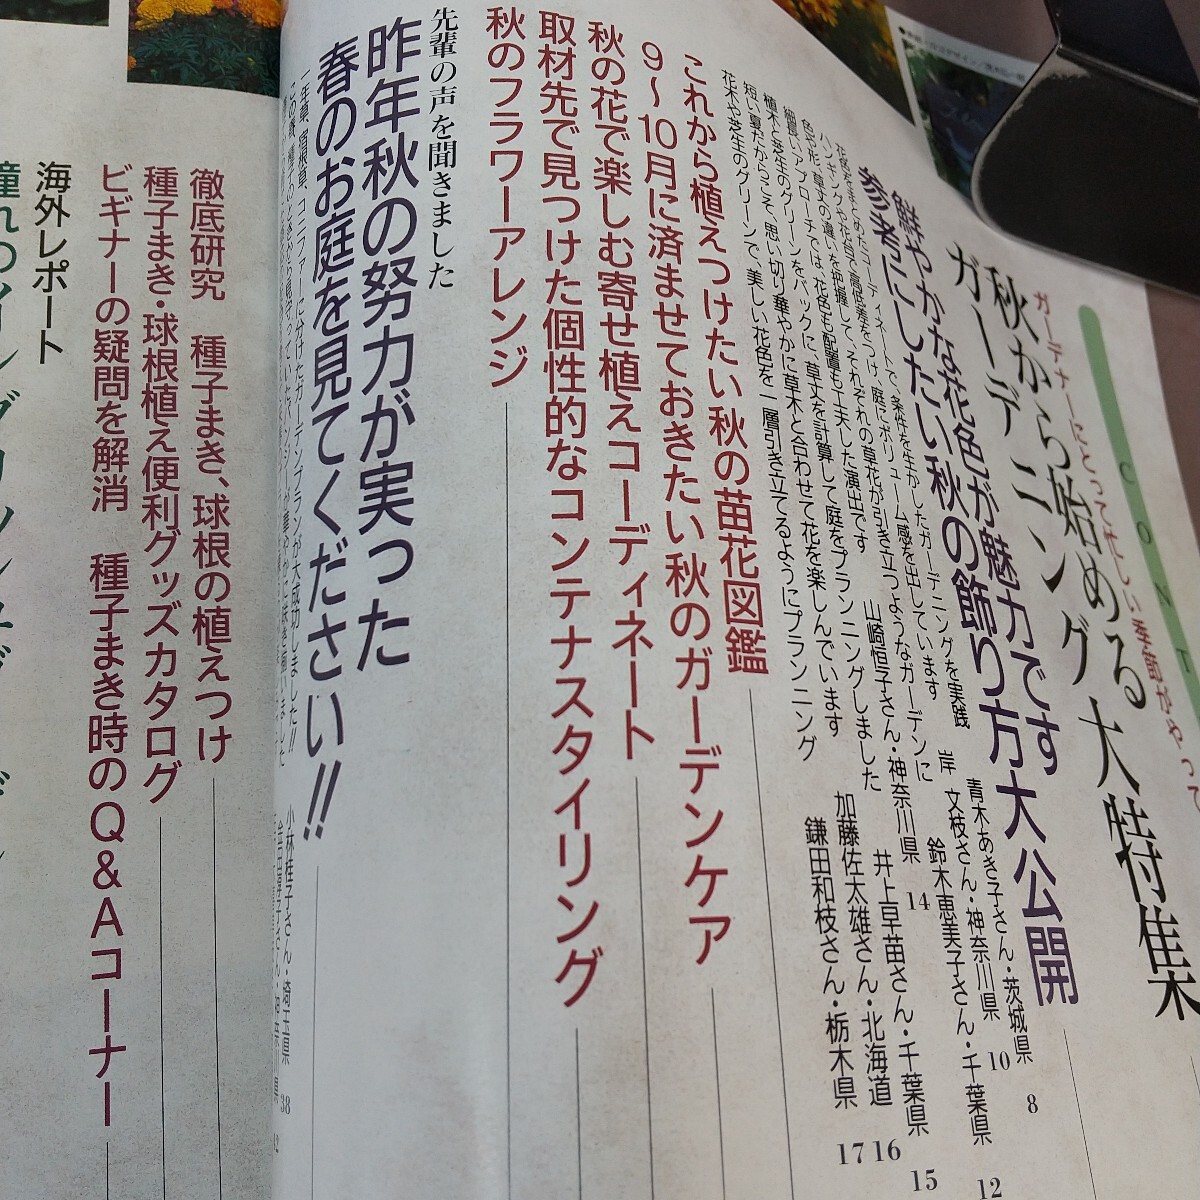 CONT
ガーデナーにとって忙しい季節がやって
秋から始める
ガーデニング大特集
鮮やかな花色が魅力です
参考にしたい秋の飾り方大公開
花色をまとめたコーディネートで、条件を生かしたガーデニングを実践
青木あき子さん・茨城県 8
ハンギングや花台で高低差をつけ、庭にボリューム感を出しています
岸 文枝さん・神奈川県 10
色や形、草丈の違いを把握して、それぞれの草花が引き立つようなガーデンに
鈴木恵美子さん・千葉県 12
細長いアプローチでは、花色も配置も工夫した演出です
山崎恒子さん・神奈川県 14
植木と芝生のグリーンをバックに、草丈を計算して庭をプランニングしました
井上早苗さん・千葉県 15
短い夏だからこそ、思い切り華やかに草木と合わせて花を楽しんでいます
加藤佐太雄さん・北海道 16
花木や芝生のグリーンで、美しい花色を一層引き立てるようにプランニング
鎌田和枝さん・栃木県 17
これから植えつけたい秋の苗花図鑑
9〜10月に済ませておきたい秋のガーデンケア
秋の花で楽しむ寄せ植えコーディネート
取材先で見つけた個性的なコンテナスタイリング
秋のフラワーアレンジ
先輩の声を聞きました
昨年秋の努力が実った
春のお庭を見てください!!
一年草、宿根草、コニファーに分けたガーデンプランが大成功しました!!
小林桂子さん・埼玉県 38
徹底研究 種子まき、球根の植えつけ
種子まき・球根植え便利グッズカタログ
ビギナーの疑問を解消 種子まき時のQ&Aコーナー
海外レポート